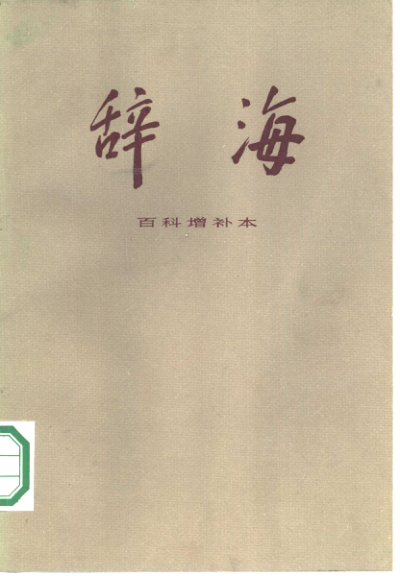 辞海
百科增补本